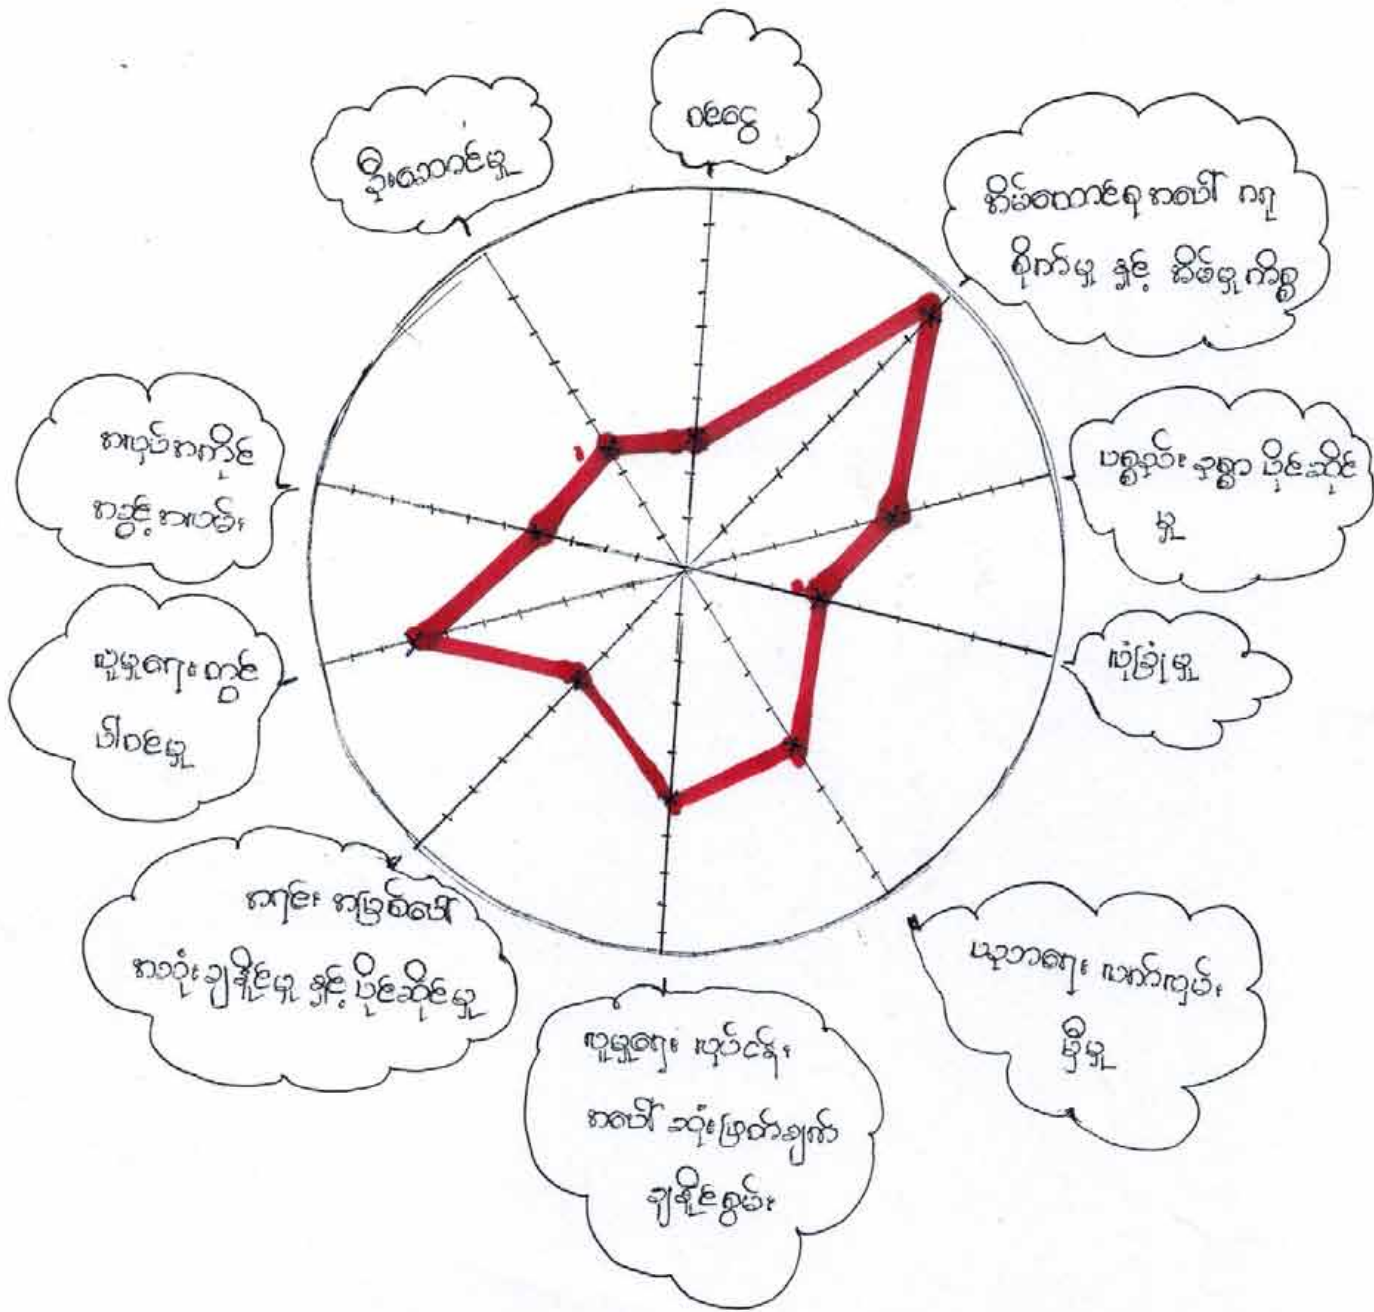 ဝင်ငွေ
ဦးဆောင်မှု
အိမ်ထောင်ရေအပေါ် ဂရု
စိုက်မှု နှင့် အိမ်မှုကိစ္စ
ပစ္စည်းဥစ္စာ ပိုင်ဆိုင်
မှု
လုံခြုံမှု
ယုဘရေး လက်လှမ်း
မှီမှု
လူမှုရေး လုပ်ငန်း
အပေါ် ဆုံးဖြတ်ချက်
ချနိုင်စွမ်း
အရင်း အမြစ်ပေါ်
အသုံးချနိုင်မှု နှင့် ပိုင်ဆိုင်မှု
လူမှုရေးတွင်
ပါဝင်မှု
အလုပ်အကိုင်
အခွင့်အလမ်း